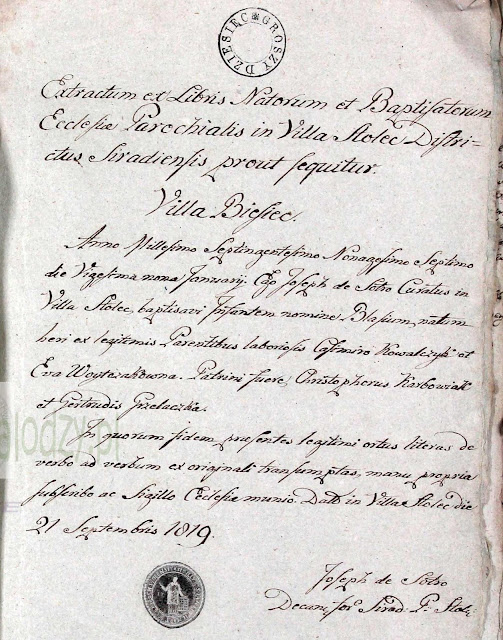 DZIESIĘC GROSZY
Extractum ex Libris Natorum et Baptisatorum
Ecclesiæ Parochialis in Villa Stolec Distri-
ctus Siradiensis prout sequitur.
Villa Biesiec.
Anno Millesimo Septingentesimo Nonagesimo Septimo
die Vigesima nona Januarij. Ego Joseph de Sotro Curatus in
Villa Stolec, baptisavi Infantem nomine Blasium, natum
heri ex legitimis Parentibus laboriosis Casimiro Kowalczyk et
Eva Woytczakowna. Patrini fuere, Christophorus Karbowiak
et Gertrudis Grzelaczka.
In quorum fidem, præsentes legitimi ortus literas de
verbo ad verbum ex originali transumptas, manu propria
subscribo ac Sigillo Ecclesiæ munio. Dat: in Villa Stolec die
21 Septembris 1819.
Joseph de Sotro
Sirad. P. Stole
lodzy.pl